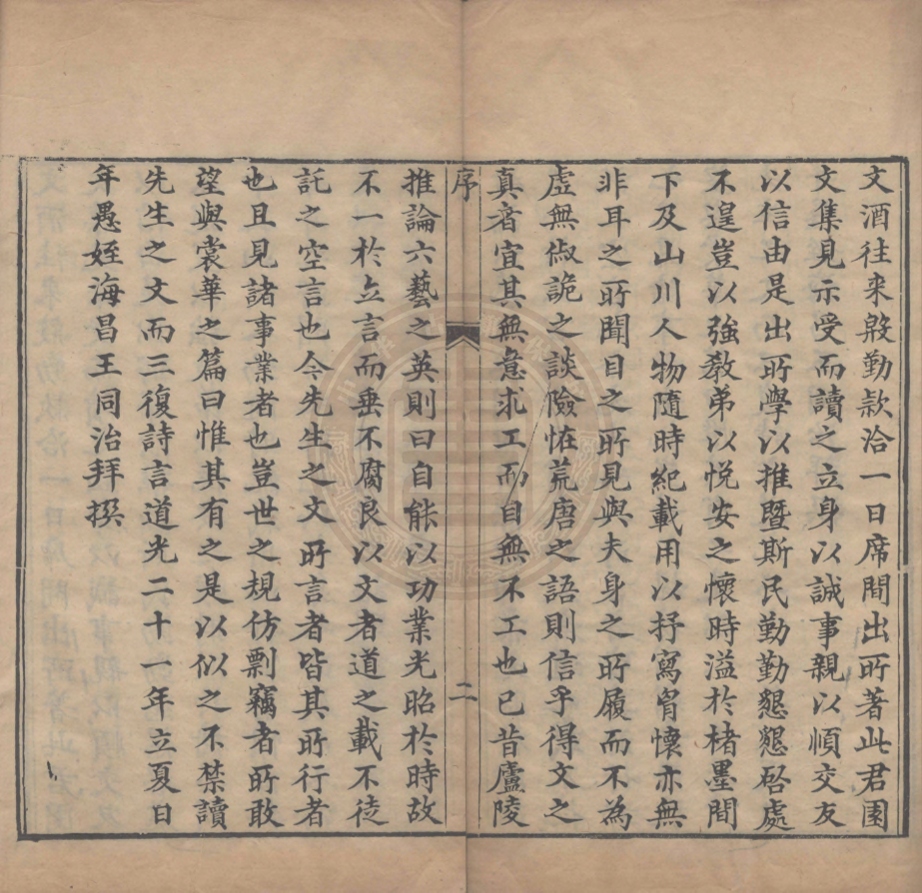 文酒往來殷勤款洽一日席間出所著此君園
文集見示受而讀之立身以誠事親以順交友
以信由是出所學以推暨斯民勤勤懇懇啓處
不遑豈以強教弟以悅安之懷時溢於楮墨間
下及山川人物隨時紀載用以抒寫胷懷亦無
非耳之所聞目之所見與夫身之所履而不為
虛無俶詭之談險怪荒唐之語則信乎得文之
真者宜其無意求工而自無不工也已昔廬陵
序
二
推論六藝之英則曰自能以功業光昭於時故
不一於立言而垂不腐良以文者道之載不徒
託之空言也今先生之文所言者皆其所行者
也且見諸事業者也豈世之規仿剽竊者所敢
望與裳華之篇曰惟其有之是以似之不禁讀
先生之文而三復詩言道光二十一年立夏日
年愚姪海昌王同治拜撰